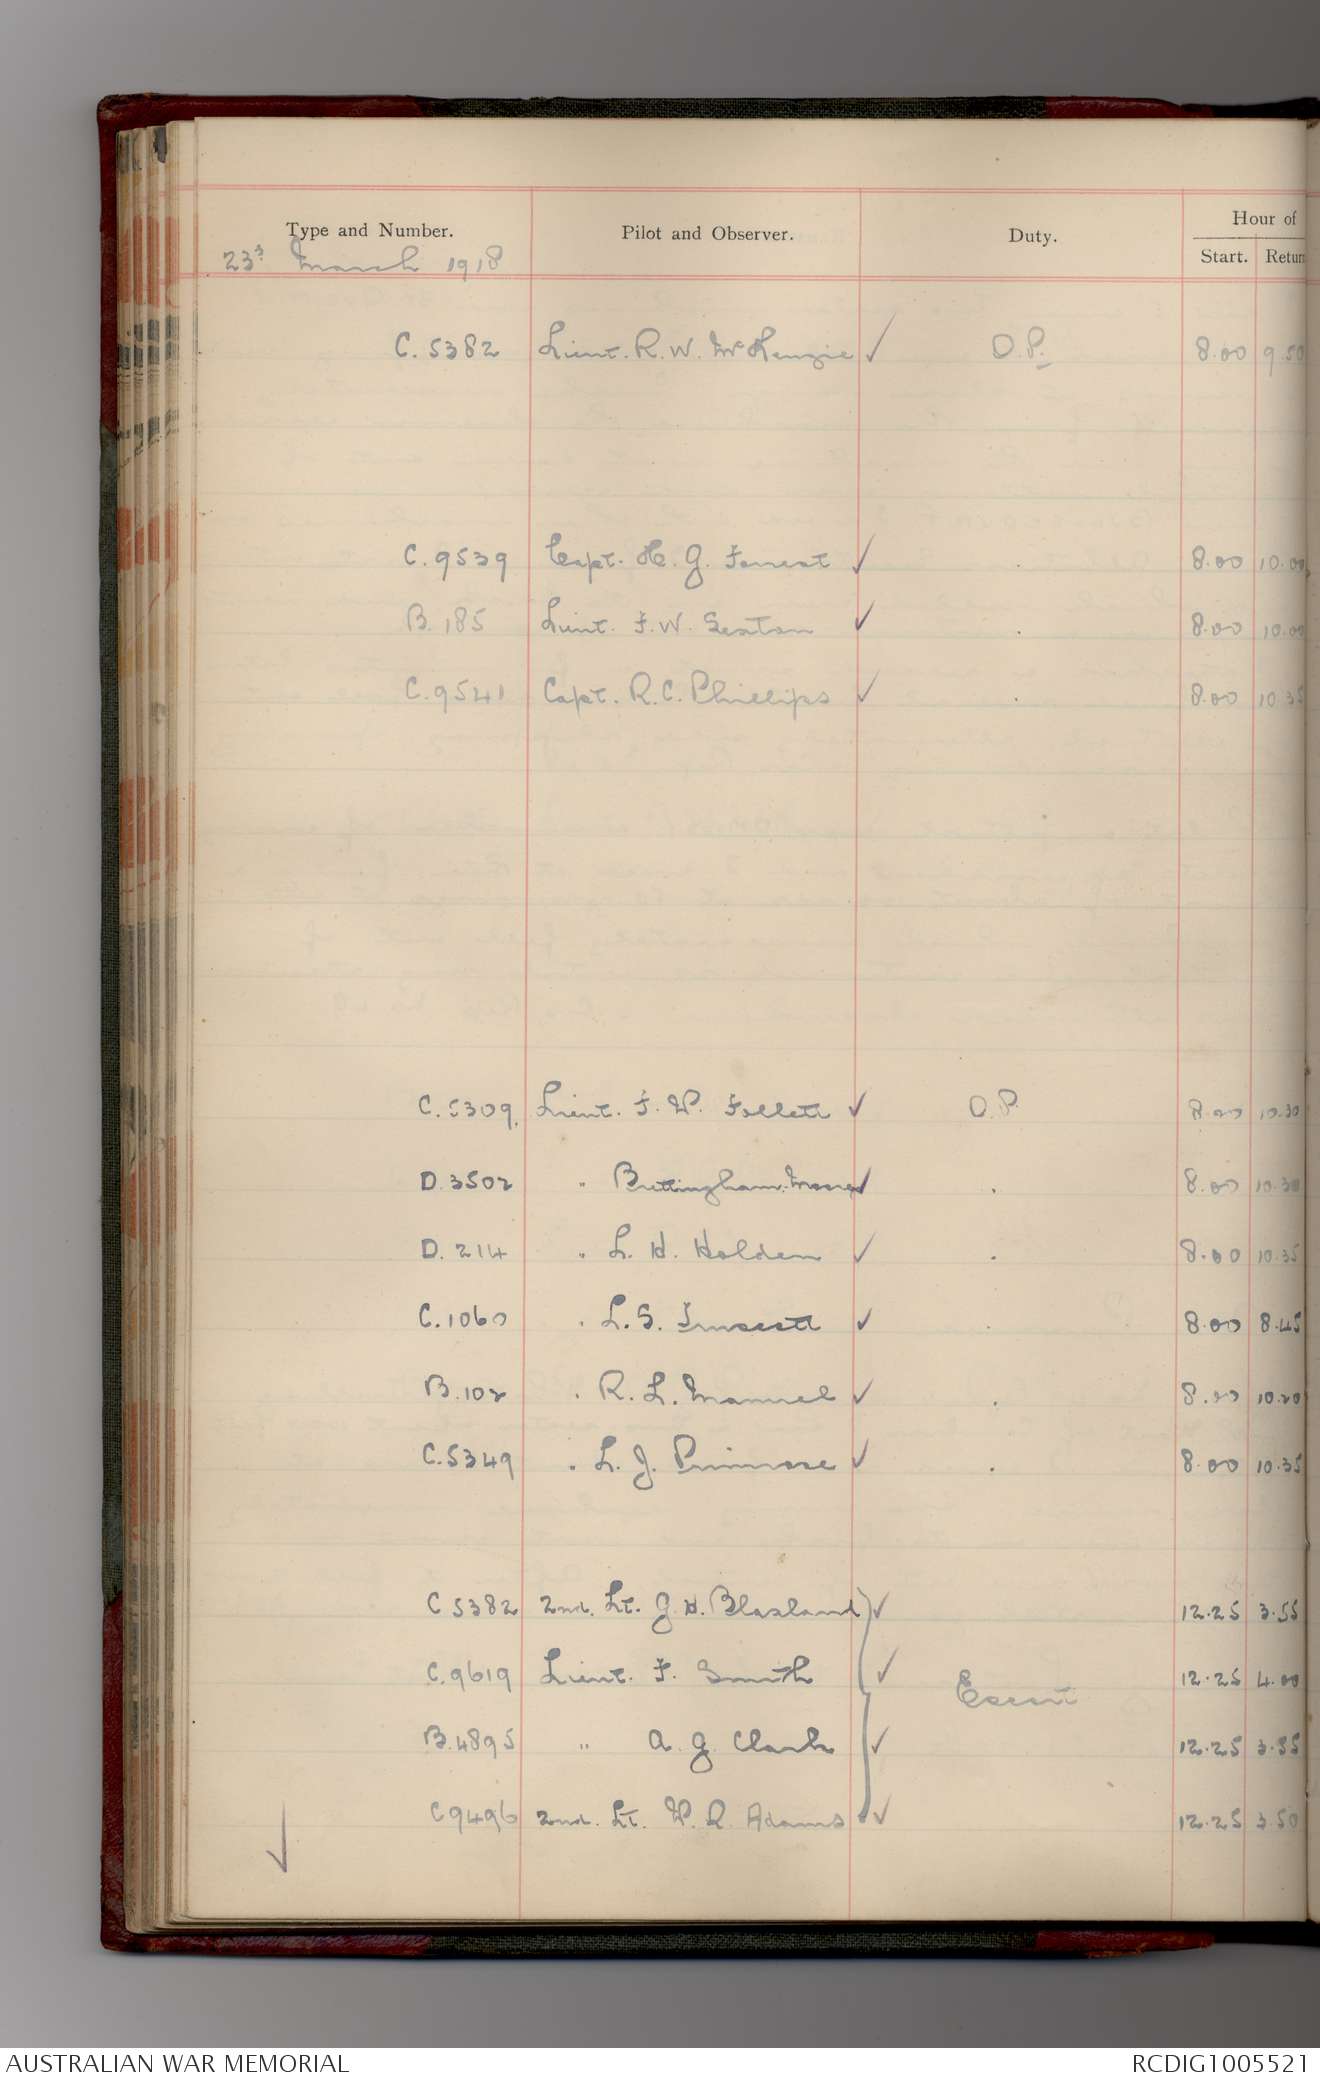 Type and Number. Pilot and Observer. Duty. Hour of
Start. Return
23rd March 1918
C. 5382 Lieut. R. W. McKenzie ✓ O.P. 8.00 9.50
C. 9539 Capt. H. G. Forrest ✓ " 8.00 10.00
B. 185 Lieut. F. W. Sexton ✓ " 8.00 10.00
C. 9541 Capt. R. C. Phillips ✓ " 8.00 10.35
C. 5309. Lieut. F. W. Follett ✓ O.P. 8.00 10.30
D. 3502 " Brettingham-Moore ✓ " 8.00 10.30
D. 214 " L. H. Holden ✓ " 8.00 10.35
C. 1060 " L. S. Truscott ✓ " 8.00 8.45
B. 102 " R. L. Manuel ✓ " 8.00 10.20
C. 5349 " L. J. Primrose ✓ " 8.00 10.35
C 5382 2nd. Lt. G. H. Blaxland ✓ 12.25 3.55
C. 9619 Lieut. F. Smith ✓ Escort 12.25 4.00
B. 4895 " A. G. Clark ✓ 12.25 3.55
C 9496 2nd. Lt. W. R. Adams ✓ 12.25 3.50
AUSTRALIAN WAR MEMORIAL RCDIG1005521